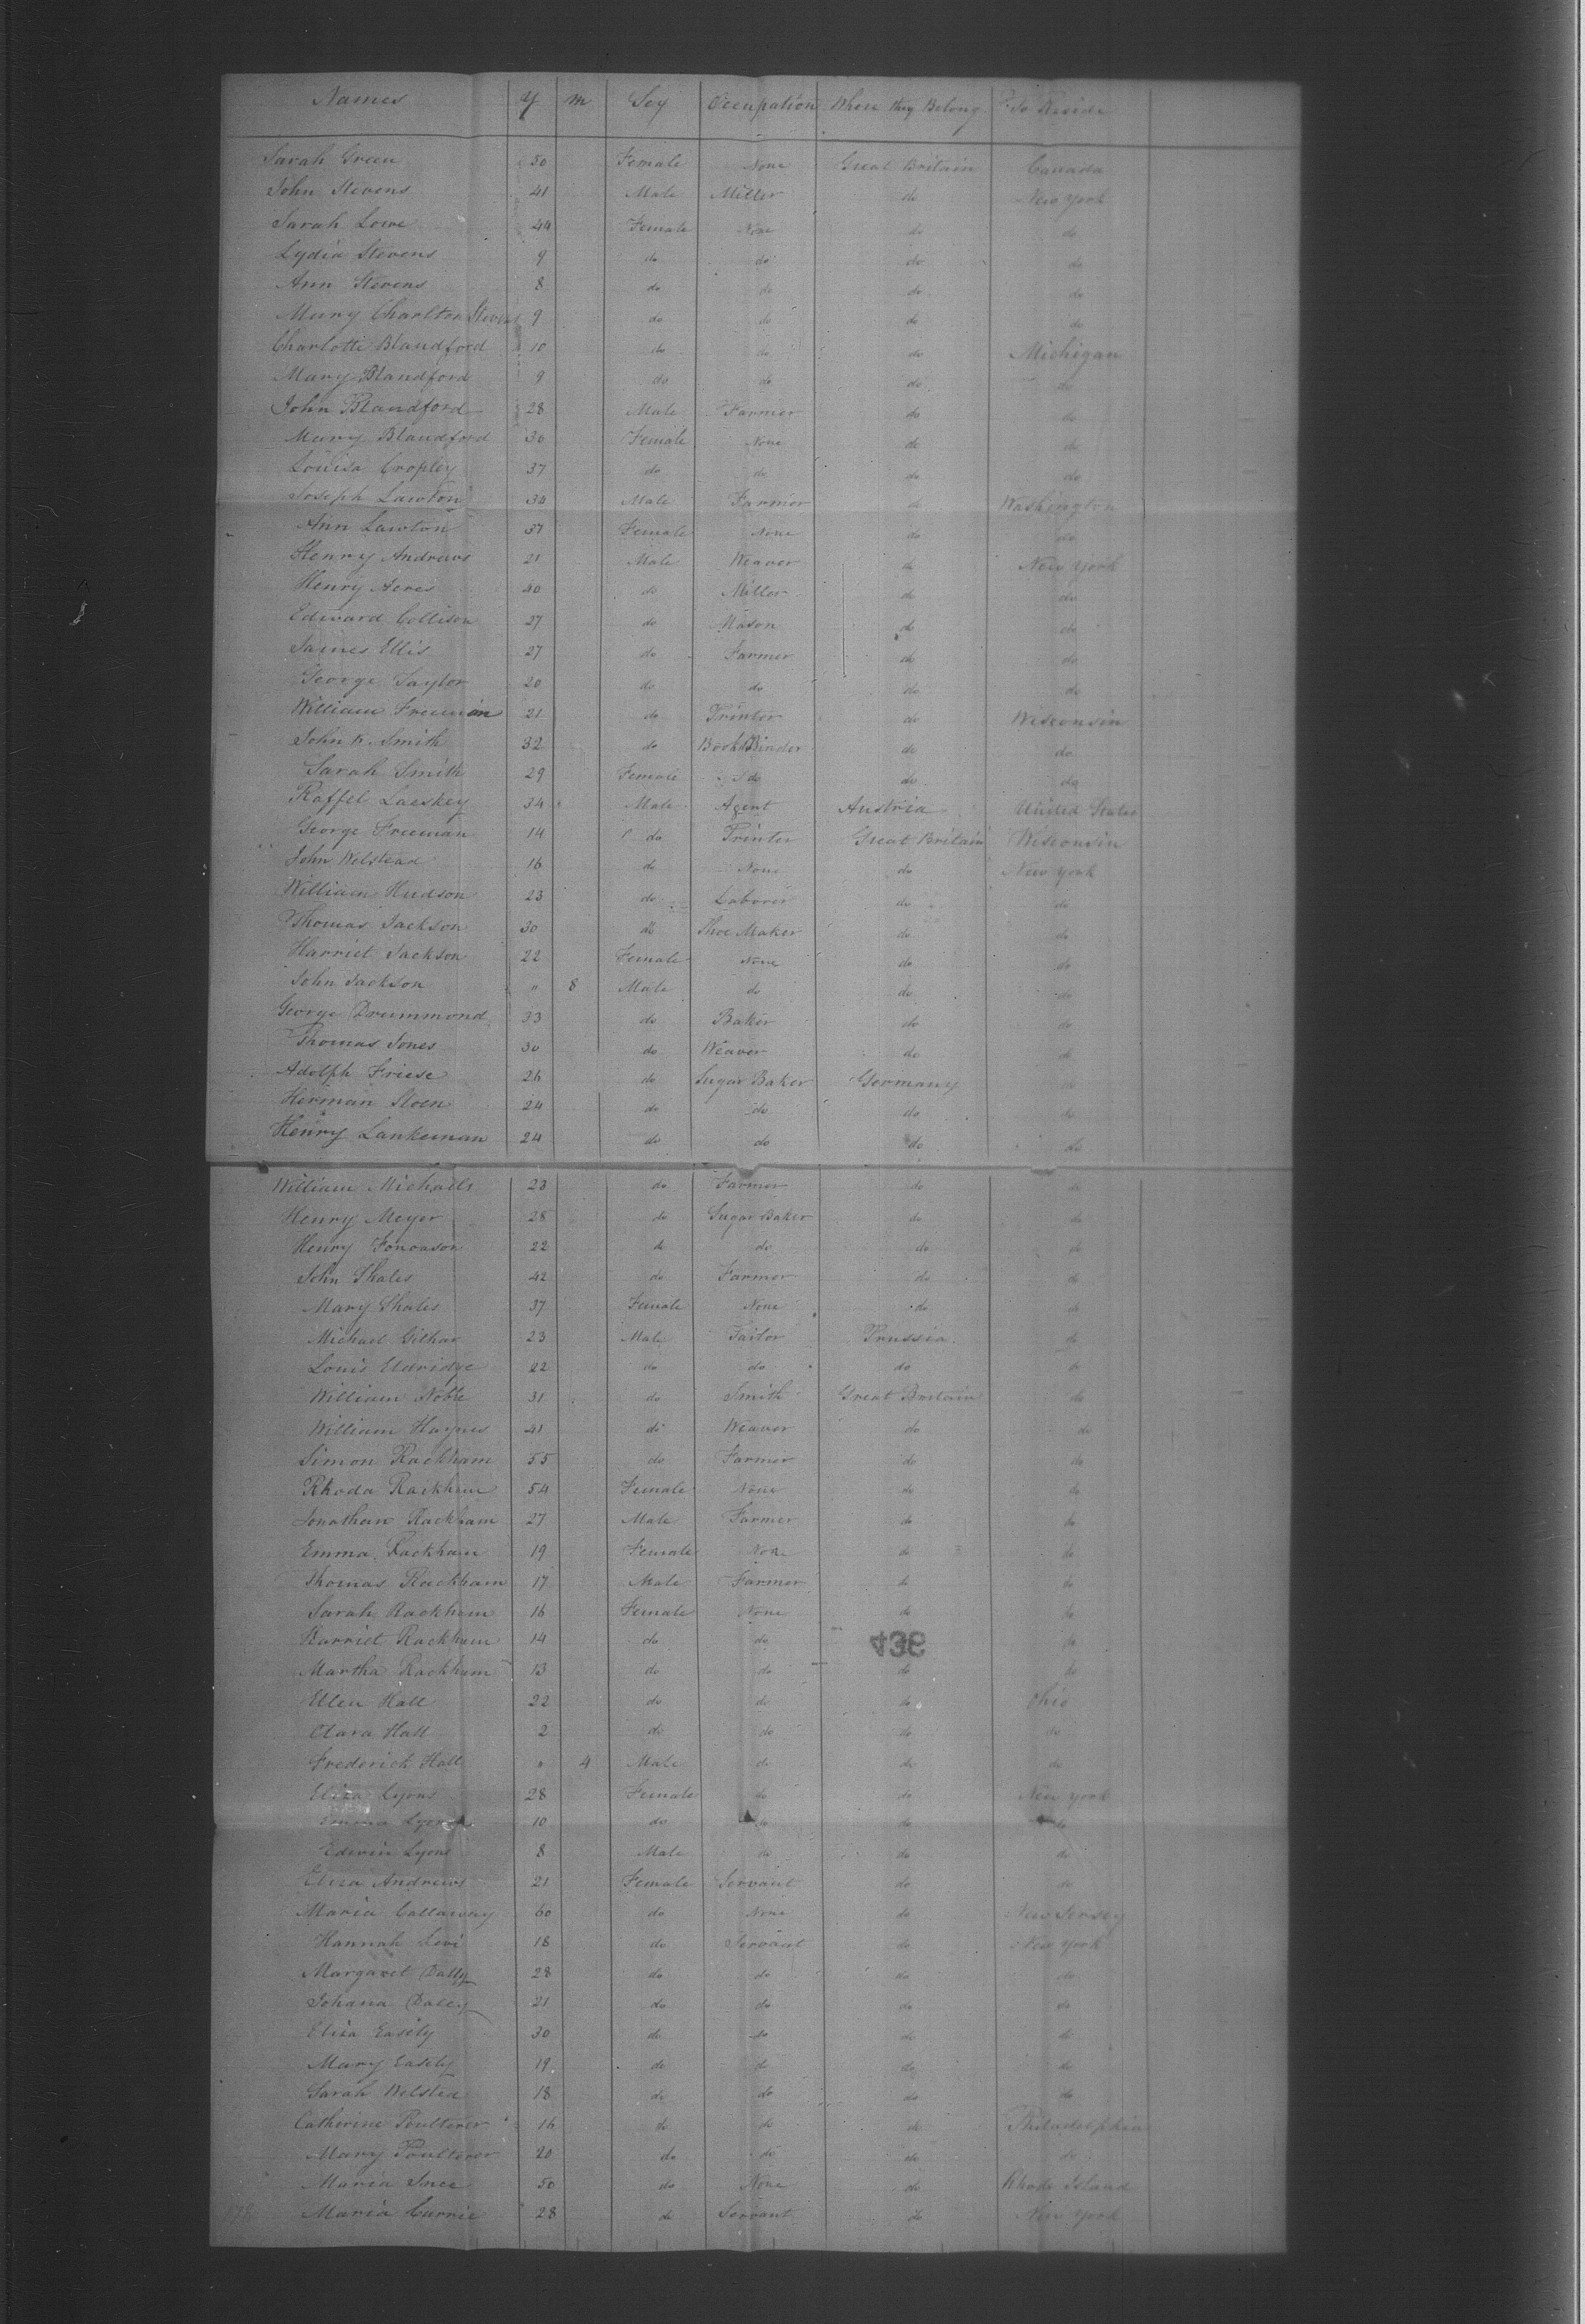 Names Y m Sex Occupation Where they Belong To Reside
Sarah Green 50 Female None Great Britain Canada
John Stevens 41 Male Miller do New York
Sarah Lowe 44 Female None do do
Lydia Stevens 9 do do do do
Ann Stevens 8 do do do do
Mary Charlton Stevens 9 do do do do
Charlotte Blandford 10 do do do Michigan
Mary Blandford 9 do do do do
John Blandford 28 Male Farmer do do
Mary Blandford 36 Female None do do
Louisa Cropley 37 do do do do
Joseph Lawton 34 Male Farmer do Washington
Ann Lawton 37 Female None do do
Henry Andrews 21 Male Weaver do New York
Henry Acres 40 do Miller do do
Edward Collison 27 do Mason do do
James Ellis 27 do Farmer do do
George Saylor 20 do do do do
William Freeman 21 do Printer do Wisconsin
John Smith 32 do Book Binder do do
Sarah Smith 29 Female do do do
Raffel Laeskey 34 Male Agent Austria United States
George Freeman 14 do Printer Great Britain Wisconsin
John Welstead 16 do None do New York
William Hudson 23 do Laborer do do
Thomas Jackson 30 do Shoe Maker do do
Harriet Jackson 22 Female None do do
John Jackson " 8 Male do do do
George Drummond 33 do Baker do do
Thomas Jones 30 do Weaver do do
Adolph Friese 26 do Sugar Baker Germany do
Herman Stoen 24 do do do do
Henry Lankeman 24 do do do do
William Michaels 23 do Farmer do do
Henry Meyer 28 do Sugar Baker do do
Henry 22 do do do do
John Shales 42 do Farmer do do
Mary Shales 37 Female None do do
Michael Gilhar 23 Male Tailor Prussia do
Louis Eldridge 22 do do do do
William Noble 31 do Smith Great Britain do
William Haynes 41 do Weaver do do
Simon Rackham 55 do Farmer do do
Rhoda Rackham 54 Female None do do
Jonathan Rackham 27 Male Farmer do do
Emma Rackham 19 Female None do do
Thomas Rackham 17 Male Farmer do do
Sarah Rackham 16 Female None do do
Harriet Rackham 14 do do do
436
Martha Rackham 13 do do do do
Ellen Hall 22 do do do Ohio
Clara Hall 2 do do do do
Frederick Hall " 4 Male do do do
Eliza Lyons 28 Female do do New York
Emma Lyons 10 do do do do
Edwin Lyons 8 Male do do do
Eliza Andrews 21 Female Servant do do
Maria Callaway 60 do None do New Jersey
Hannah Levi 18 do Servant do New York
Margaret Dally 28 do do do do
Johana Daley 21 do do do do
Eliza Easily 30 do do do do
Mary Easely 19 do do do do
Sarah Welsted 18 do do do do
Catherine Poulterer 16 do do do Philadelphia
Mary Poulterer 20 do do do do
Maria Ince 50 do None do Rhode Island
Maria Currie 28 do Servant do New York